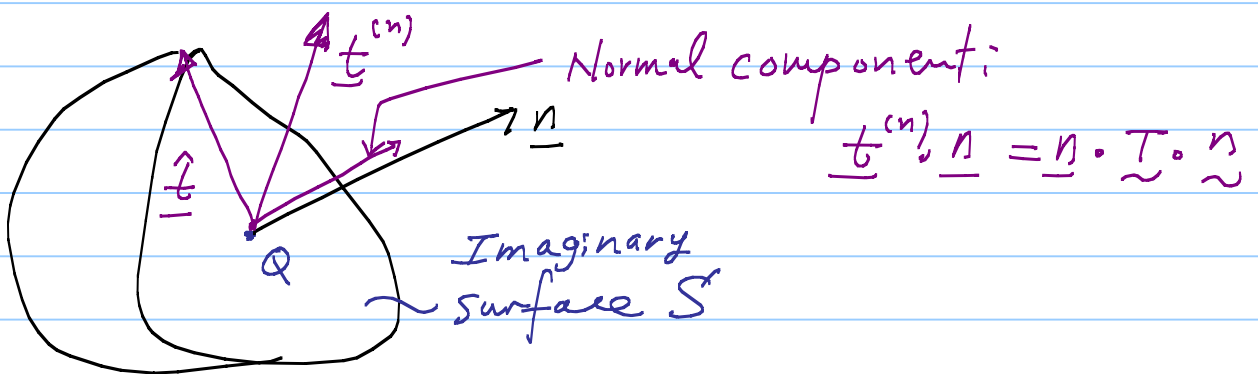 t^(n)
Normal component:
n
t^(n) · n = n · T · n
t̂
Q
Imaginary
surface S